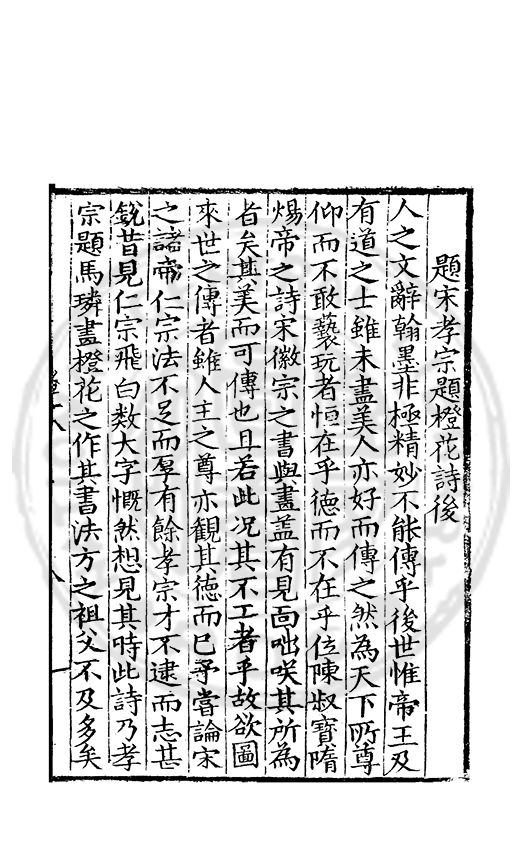 題宋孝宗題橙花詩後
人之文辭翰墨非極精妙不能傳乎後世惟帝王及
有道之士雖未盡美人亦好而傳之然為天下所尊
仰而不敢褻玩者恒在乎德而不在乎位陳叔寶隋
煬帝之詩宋徽宗之書與畫蓋有見而咄咲其所為
者矣其美而可傳也且若此况其不工者乎故欲圖
來世之傳者雖人主之尊亦觀其德而已予嘗論宋
之諸帝仁宗法不足而厚有餘孝宗才不逮而志甚
銳昔見仁宗飛白數大字慨然想見其時此詩乃孝
宗題馬璘畫橙花之作其書法方之祖父不及多矣